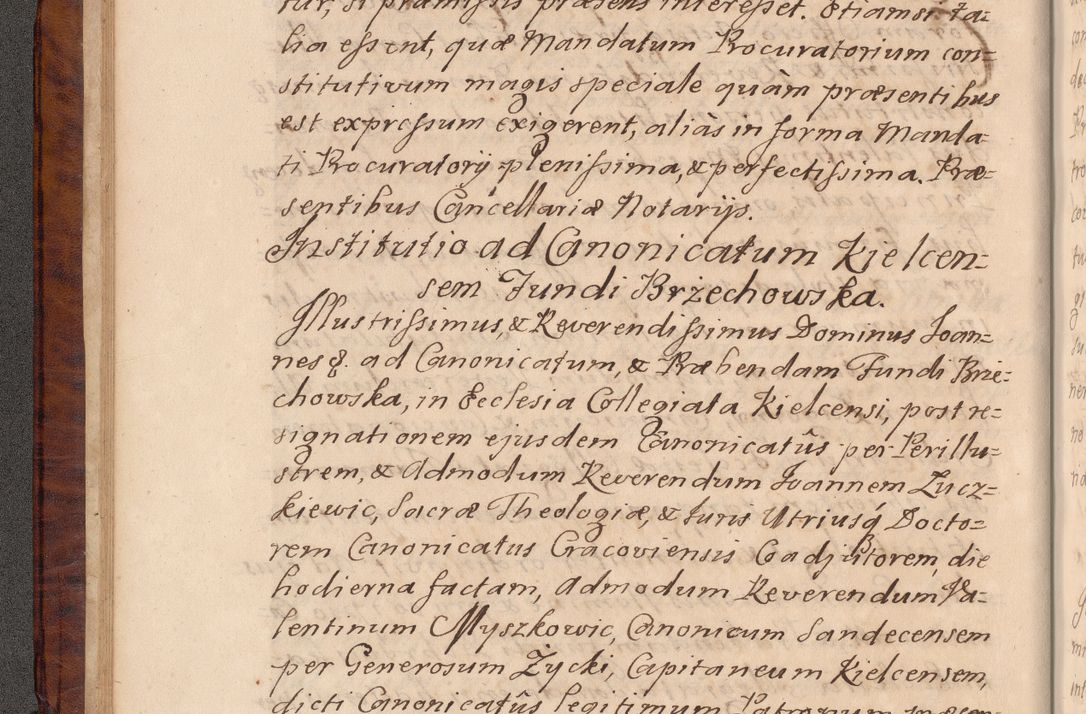 tur, si præmissis præsens interesset. Etiamsi ta=
lia essent, quæ Mandatum Procuratorium con=
stitutivum magis speciale quàm præsentibus
est expressum exigerent, aliàs in forma Manda=
ti Procuratorij plenissima, & perfectissima. Præ=
sentibus Cancellariæ Notarijs.
Institutio ad Canonicatum Kielcen=
sem Fundi Brzechowska.
Illustrissimus, & Reverendissimus Dominus Joan=
nes &. ad Canonicatum, & Præbendam Fundi Brze=
chowska, in Ecclesia Collegiata Kielcensi, post re=
signationem ejusdem Canonicatûs per Perillu=
strem, & Admodum Reverendum Joannem Łucz=
kiewic, Sacræ Theologiæ, & Juris Utriusq́ Docto=
rem Canonicatus Cracoviensis Coadjutorem, die
hodierna factam, Admodum Reverendum Va=
lentinum Myszkowic, Canonicum Sandecensem
per Generosum Życki, Capitaneum Kielcensem,
dicti Canonicatûs legitimum Patronum